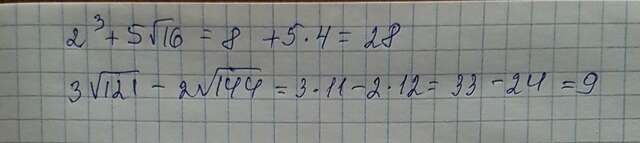 2³ + 5√16 = 8 + 5 · 4 = 28
3√121 - 2√144 = 3 · 11 - 2 · 12 = 33 - 24 = 9